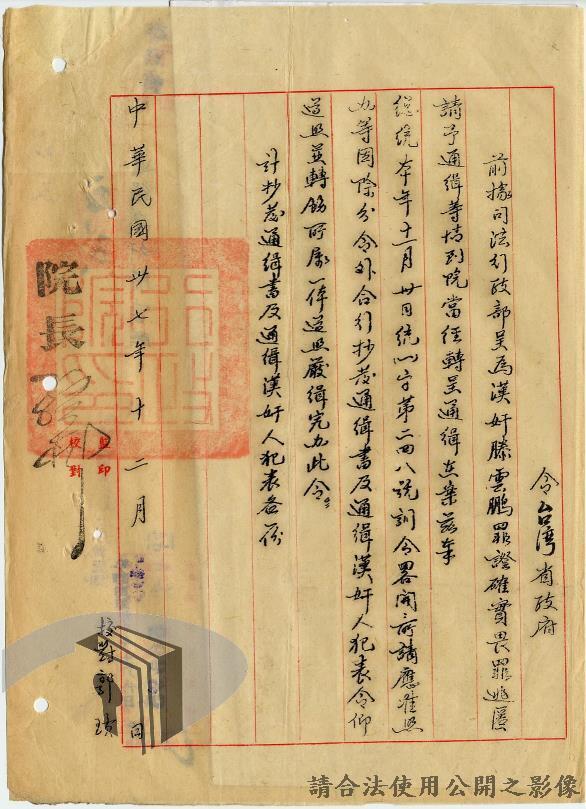 令台湾省政府
前據司法行政部呈為漢奸滕雲鵬罪證確實畏罪逃匿
請予通緝等情到院當經轉呈通緝在案茲奉
總統本年十一月卅日統(一)字第二四八號訓令畧開所請應准照
办等因除分令外合行抄發通緝書及通緝漢奸人犯表令仰
遵照並轉飭所屬一体遵照嚴緝究办此令
計抄發通緝書及通緝漢奸人犯表各一份
院長
監印
校對
中華民國卅七年十二月 日
校對郭
請合法使用公開之影像